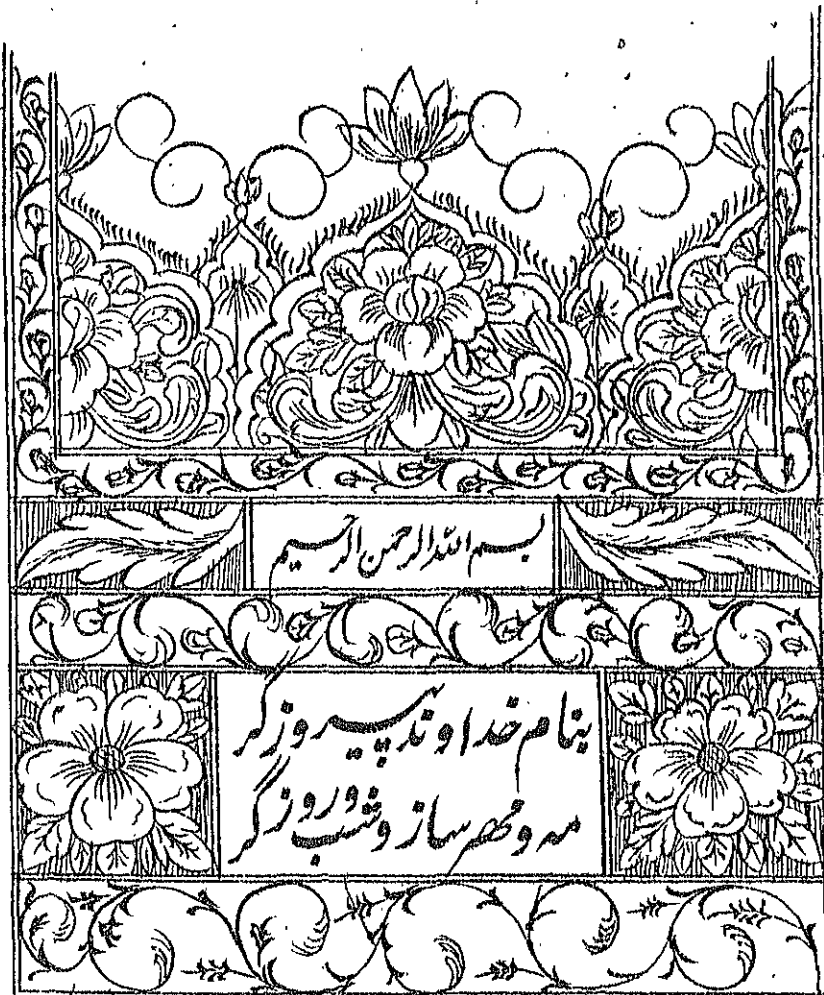 بسم الله الرحمن الرحیم
بنام خداوند پیروزگر
مه و مهر ساز و شب و روزگر